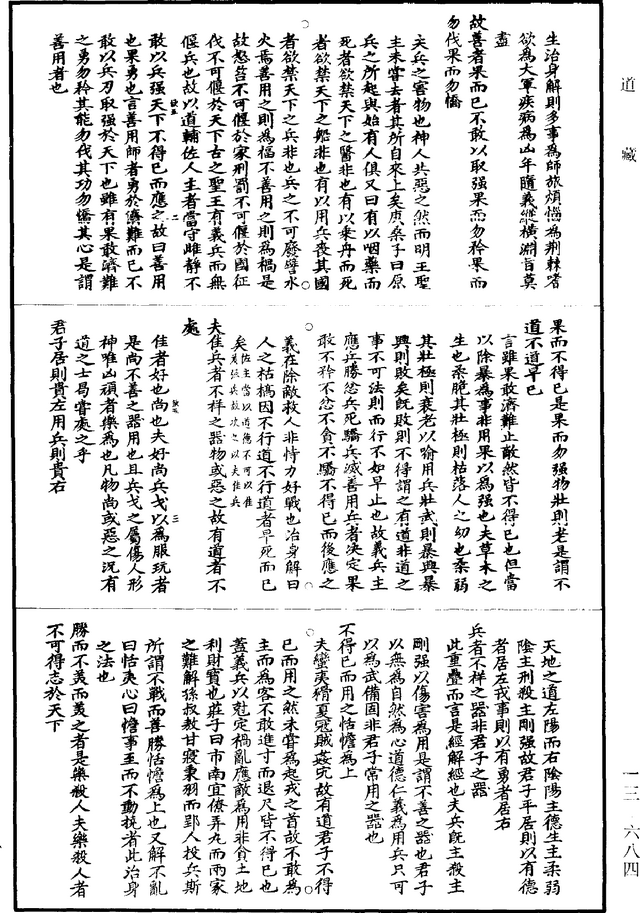 道藏
生治身解則多事為師旅煩惱為荆棘嗜
欲為大軍疾病為凶年隨義縱橫淵旨莫
盡
故善者果而已不敢以取强果而勿矜果而
勿伐果而勿憍
夫兵之害物也神人共惡之然而明王聖
主未嘗去者其所自來上矣庚桑子曰原
兵之所起與始有人俱又曰有以咽藥而
死者欲禁天下之醫非也有以乘舟而死
者欲禁天下之船非也有以用兵喪其國
者欲禁天下之兵非也兵之不可廢譬水
火焉善用之則為福不善用之則為禍是
故怒笞不可偃於家刑罰不可偃於國征
伐不可偃於天下古之聖王有義兵而無
偃兵也故以道輔佐人主者當守雌静不
敢以兵强天下不得已而應之故曰善用
也果勇也言善用師者勇於濟難而已不
敢以兵刃取强於天下也雖有果敢濟難
之勇勿矜其能勿伐其功勿憍其心是謂
善用者也
果而不得已是果而勿强物壯則老是謂不
道不道早已
言雖果敢濟難止敵然皆不得已也但當
以除暴為事非用果以為强也夫草木之
生也柔脆其壯極則枯落人之幼也柔弱
其壯極則衰老以喻用兵壯武則暴興暴
興則敗矣既敗則不得謂之有道非道之
事不可法則而行不如早止也故義兵主
應兵勝忿兵死驕兵滅善用兵者決定果
敢不矜不忿不貪不驕不得已而後應之
義在除敵救人非恃力好戰也治身解曰
人之枯槁因不行道不行道者早死而已
矣
夫佳兵者不祥之器物或惡之故有道者不
處
佳者好也尚也夫好尚兵戈以為服玩者
是尚不善之器用也且兵戈之屬傷人形
神唯凶頑者樂為也凡物尚或惡之況有
道之士局嘗處之乎
君子居則貴左用兵則貴右
天地之道左陽而右陰陽主德生主柔弱
陰主刑殺主剛强故君子平居則以有德
者居左戎事則以有勇者居右
兵者不祥之器非君子之器
此重疊而言是經解經也夫兵既主殺主
剛强以傷害為用是謂不善之器也君子
以無為自然為心道德仁義為用兵只可
以為武備固非君子常用之器也
不得已而用之恬憺為上
夫蠻夷猾夏寇賊姦宄故有道君子不得
已而用之然未嘗為起戎之首故不敢為
主而為客不敢進寸而退尺皆不得已也
蓋義兵以尅定禍亂應敵為用非貪土地
利財寶也莊子曰市南宜僚弄丸而兩家
之難解孫叔敖甘寢秉羽而郢人投兵斯
所謂不戰而善勝恬憺為上也又解不亂
曰恬夷心曰憺事至而不動撓者此治身
之法也
勝而不美而美之者是樂殺人夫樂殺人者
不可得志於天下
一三·六八四